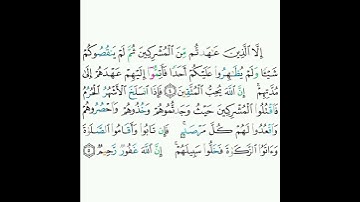 إِلَّا الَّذِينَ عَاهَدتُّم مِّنَ الْمُشْرِكِينَ ثُمَّ لَمْ يَنقُصُوكُمْ
شَيْئًا وَلَمْ يُظَاهِرُوا عَلَيْكُمْ أَحَدًا فَأَتِمُّوا إِلَيْهِمْ عَهْدَهُمْ إِلَىٰ
مُدَّتِهِمْ ۚ إِنَّ اللَّهَ يُحِبُّ الْمُتَّقِينَ ﴿٤﴾ فَإِذَا انسَلَخَ الْأَشْهُرُ الْحُرُمُ
فَاقْتُلُوا الْمُشْرِكِينَ حَيْثُ وَجَدتُّمُوهُمْ وَخُذُوهُمْ وَاحْصُرُوهُمْ
وَاقْعُدُوا لَهُمْ كُلَّ مَرْصَدٍ ۚ فَإِن تَابُوا وَأَقَامُوا الصَّلَاةَ
وَآتَوُا الزَّكَاةَ فَخَلُّوا سَبِيلَهُمْ ۚ إِنَّ اللَّهَ غَفُورٌ رَّحِيمٌ ﴿٥﴾